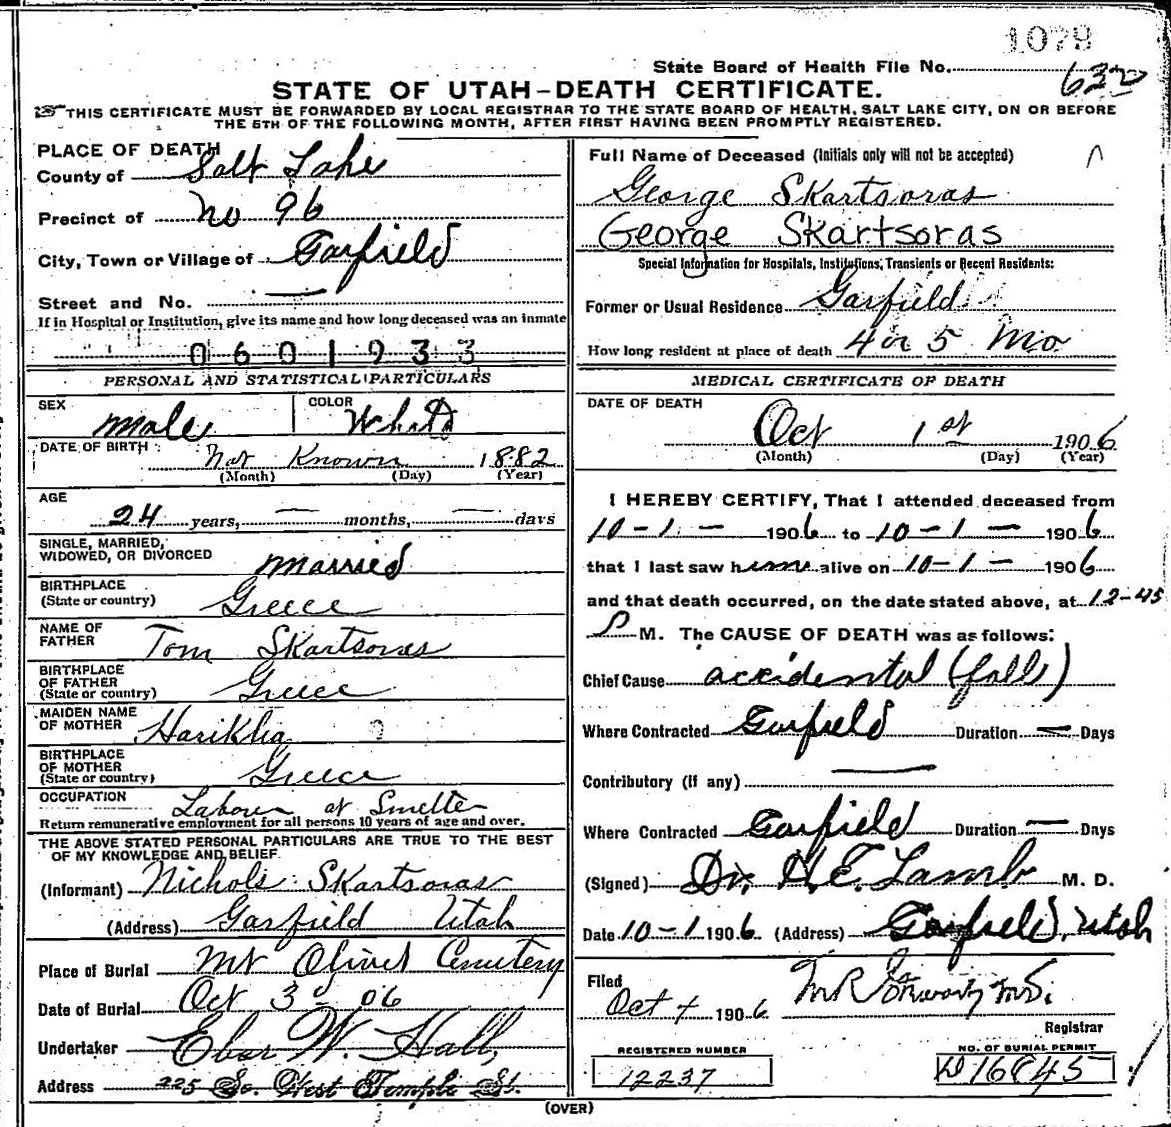 1079
State Board of Health File No. 632
STATE OF UTAH-DEATH CERTIFICATE.
THIS CERTIFICATE MUST BE FORWARDED BY LOCAL REGISTRAR TO THE STATE BOARD OF HEALTH, SALT LAKE CITY, ON OR BEFORE
THE 5TH OF THE FOLLOWING MONTH, AFTER FIRST HAVING BEEN PROMPTLY REGISTERED.
PLACE OF DEATH
County of Salt Lake
Precinct of No 96
City, Town or Village of Garfield
Street and No. —
If in Hospital or Institution, give its name and how long deceased was an inmate
0601933
PERSONAL AND STATISTICAL PARTICULARS
SEX Male COLOR White
DATE OF BIRTH Not Known 1882
(Month) (Day) (Year)
AGE
24 years, — months, — days
SINGLE, MARRIED,
WIDOWED, OR DIVORCED Married
BIRTHPLACE
(State or country) Greece
NAME OF
FATHER Tom Skartsoras
BIRTHPLACE
OF FATHER
(State or country) Greece
MAIDEN NAME
OF MOTHER Hariklia ?
BIRTHPLACE
OF MOTHER
(State or country) Greece
OCCUPATION Laborer at Smelter
Return remunerative employment for all persons 10 years of age and over.
THE ABOVE STATED PERSONAL PARTICULARS ARE TRUE TO THE BEST
OF MY KNOWLEDGE AND BELIEF.
(Informant) Nichols Skartsoras
(Address) Garfield Utah
Place of Burial Mt Olivet Cemetery
Date of Burial Oct 3 - 06
Undertaker Eber W. Hall,
Address 225 So. West Temple St.
Full Name of Deceased (Initials only will not be accepted)
George Skartsoras
George Skartsoras
Special Information for Hospitals, Institutions, Transients or Recent Residents:
Former or Usual Residence Garfield
How long resident at place of death 4 or 5 Mo
MEDICAL CERTIFICATE OF DEATH
DATE OF DEATH
Oct 1st 1906
(Month) (Day) (Year)
I HEREBY CERTIFY, That I attended deceased from
10-1- 1906 to 10-1- 1906
that I last saw him alive on 10-1- 1906
and that death occurred, on the date stated above, at 12-45
P M. The CAUSE OF DEATH was as follows:
Chief Cause accidental (fall)
Where Contracted Garfield Duration — Days
Contributory (if any) —
Where Contracted Garfield Duration — Days
(Signed) Dr. H.E. Lamb M. D.
Date 10-1 1906. (Address) Garfield, Utah
Filed
Oct 4 1906
Registrar
REGISTERED NUMBER
12237
NO. OF BURIAL PERMIT
(OVER)